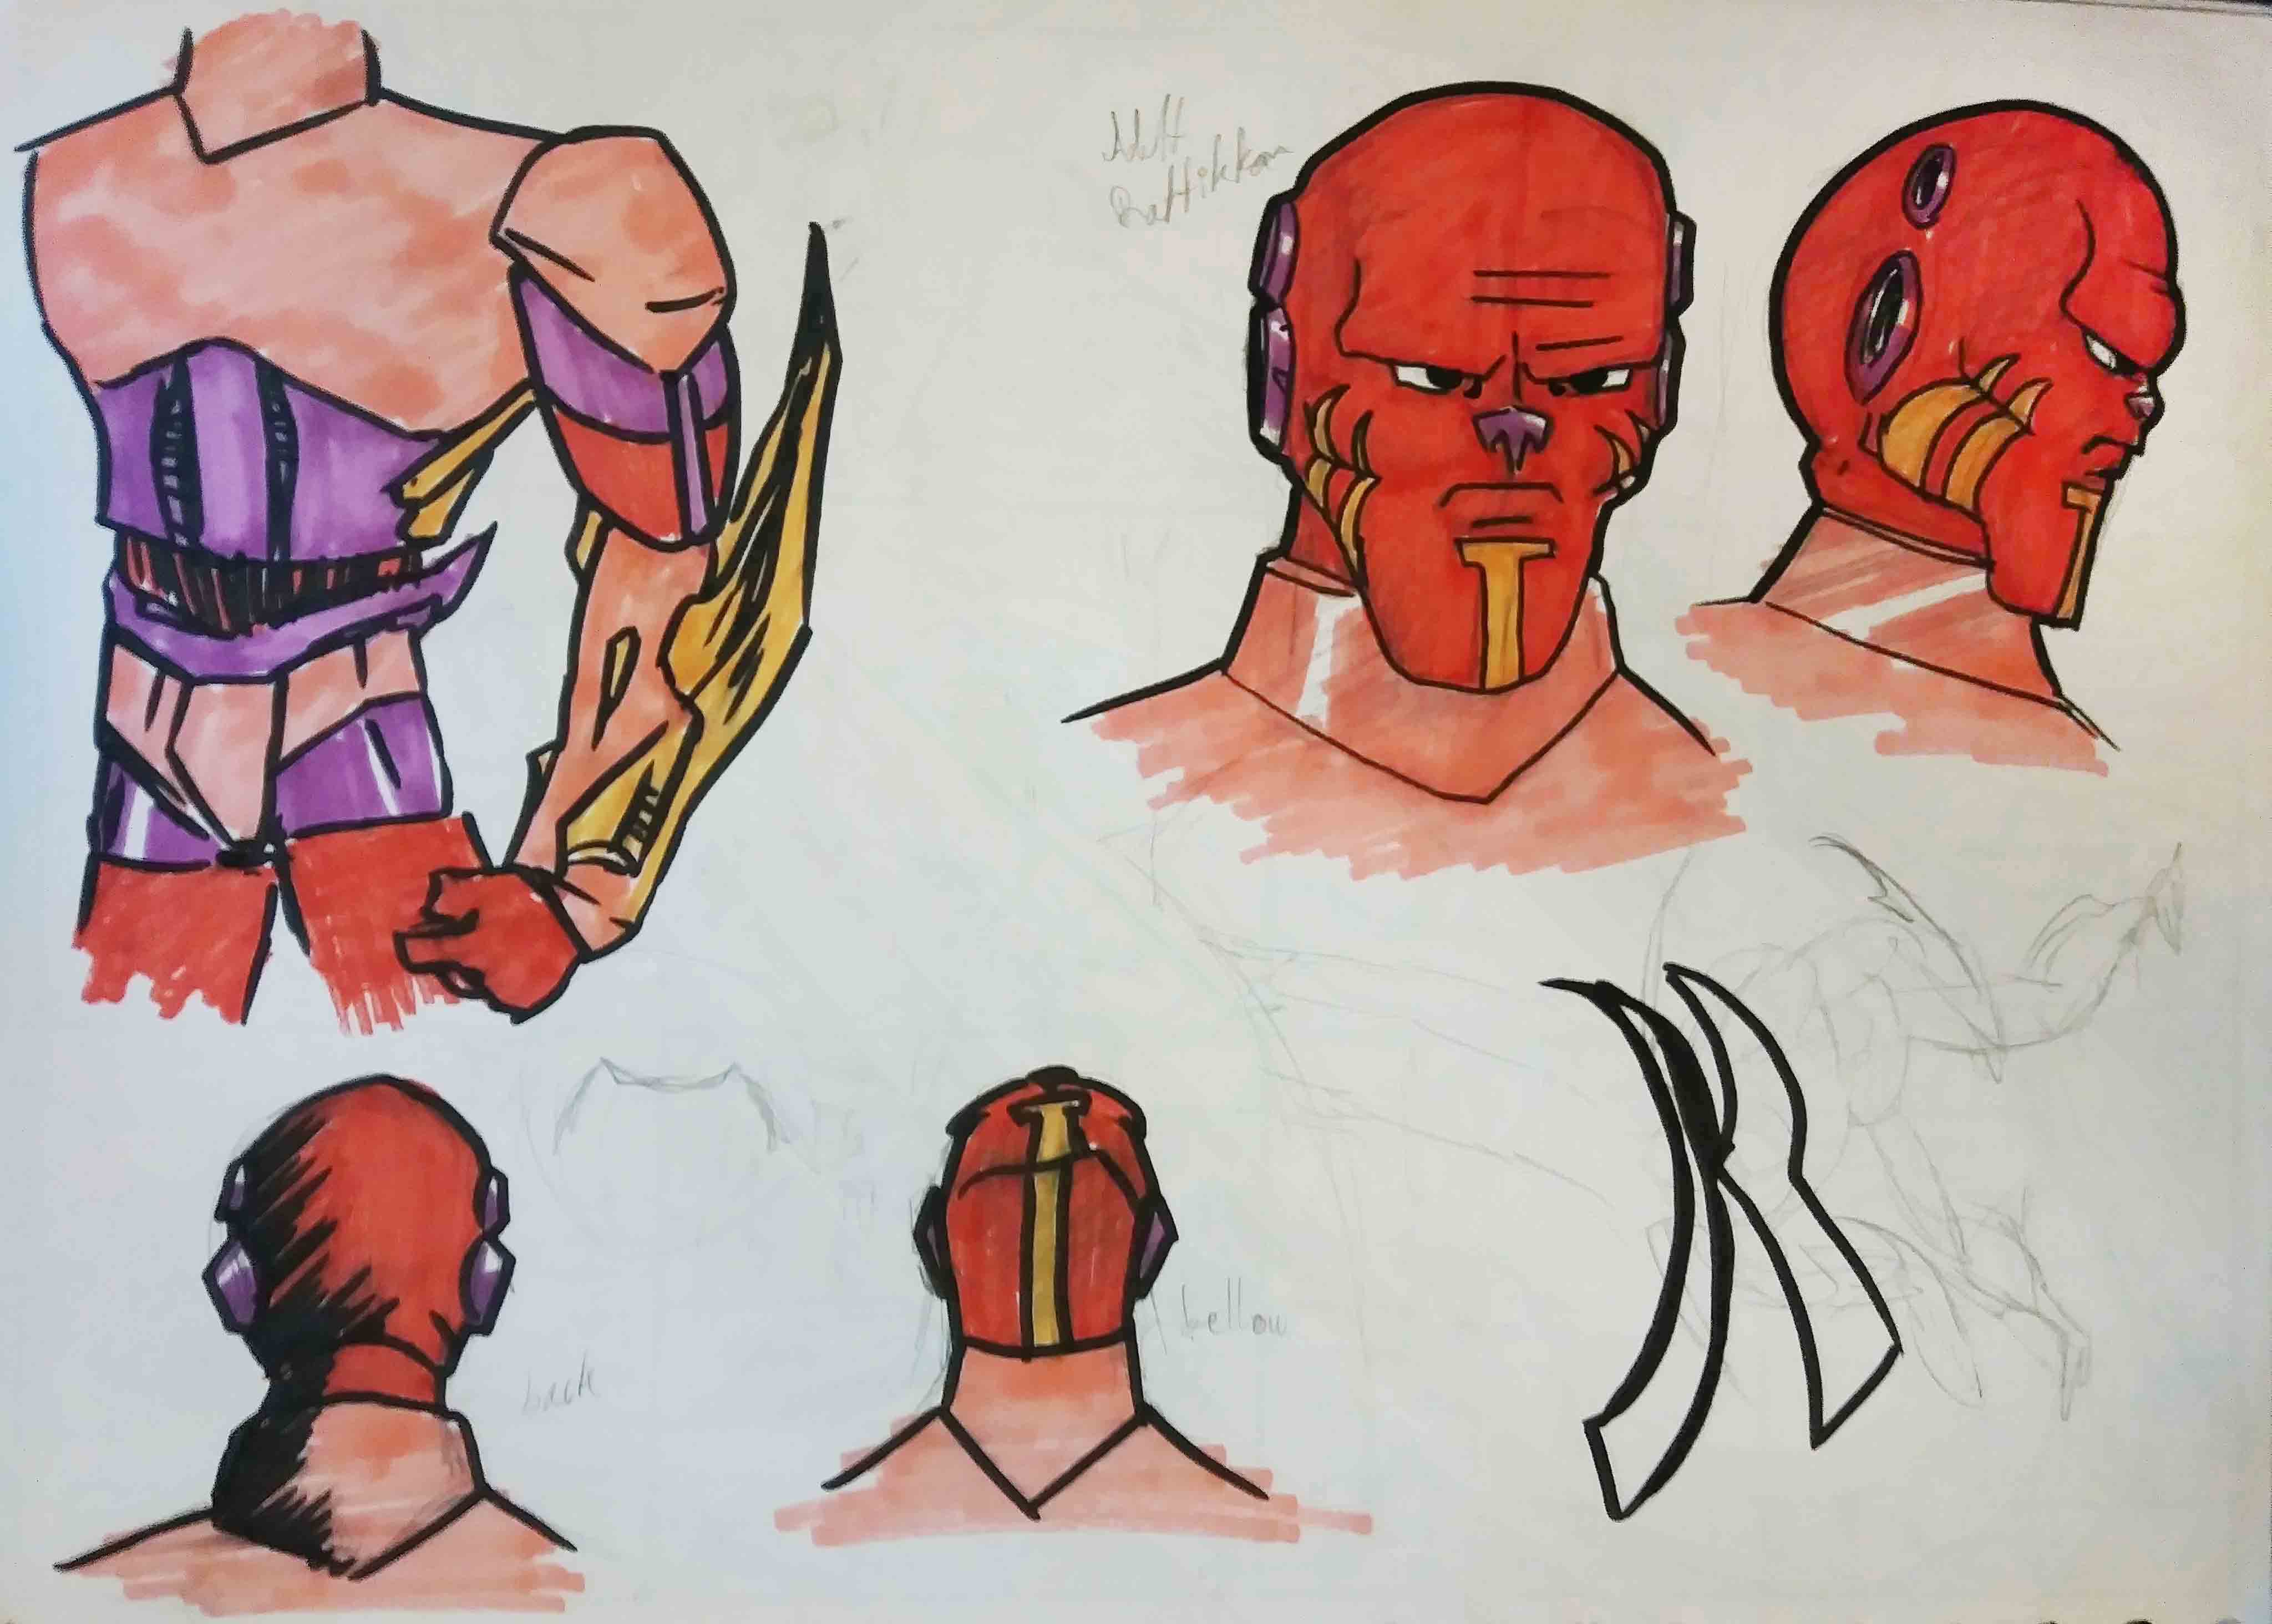 Adult
Battikkon
back
bellow